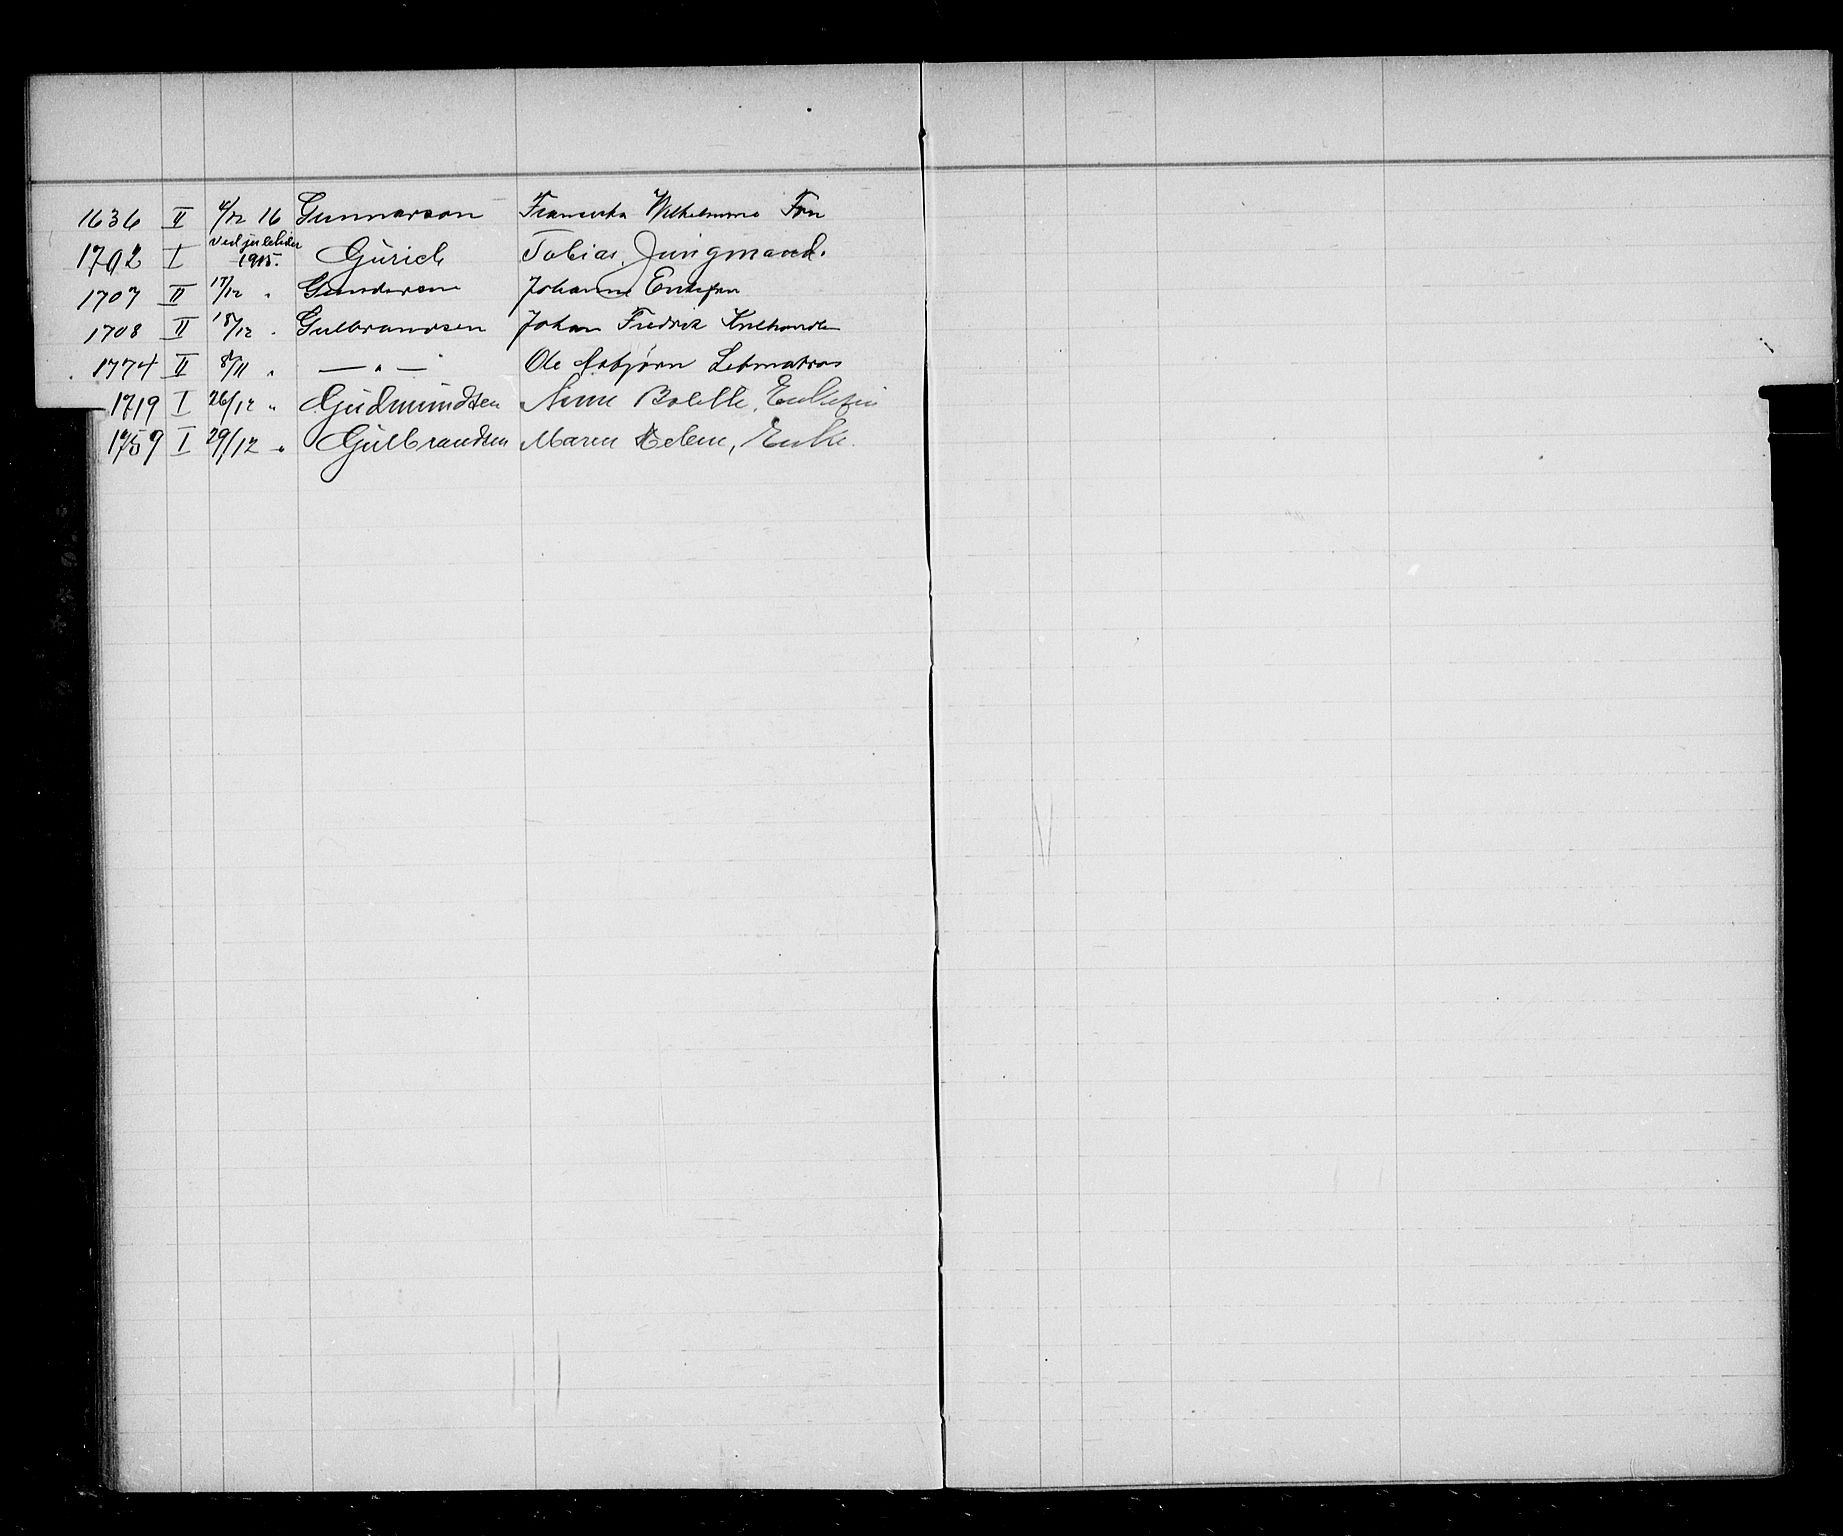 1636 II 4/12 16 Gunnarson Franciska Wilhelmine Fru
1702 I ved juletider 1915. Gurich Tobias, Jungmand.
1707 II 17/12 " Gundersen Johanne Enkefru
1708 II 18/12 " Gulbrandsen Johan Fredrik Kulhandler
1774 II 8/11 " — " — Ole Asbjørn Letmatros
1719 I 26/12 " Gudmundsen Anne Bolette, Enkefru
1759 I 29/12 " Gulbrandsen Maren Helene, Enke.